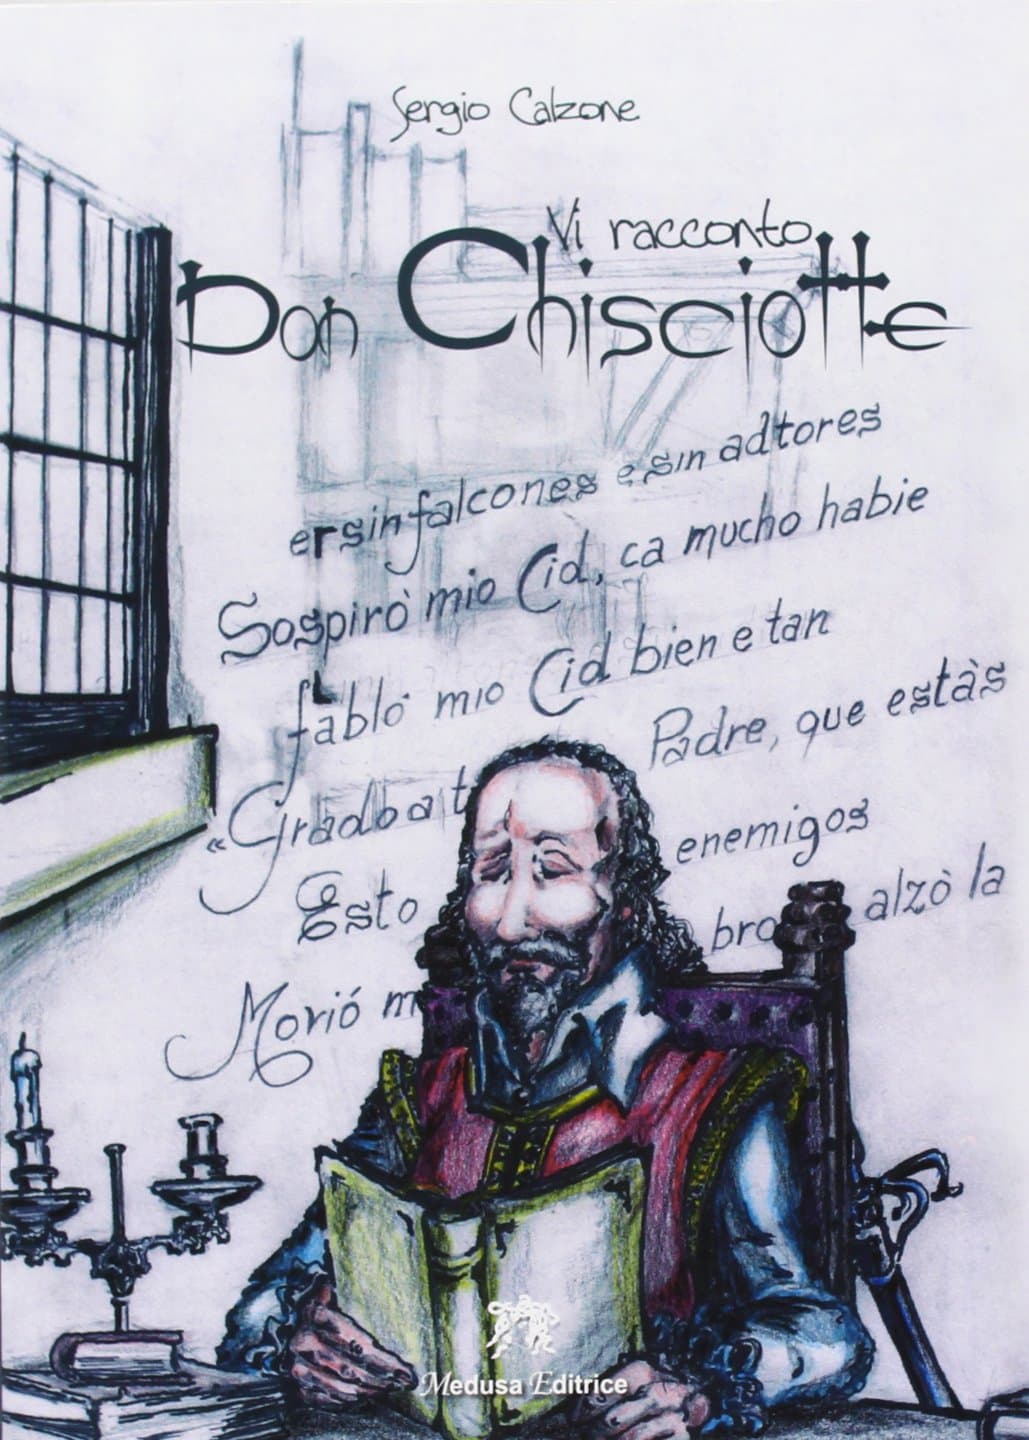 Sergio Calzone
Vi racconto
Don Chisciotte
er sin falcones e sin adtores
Sospirò mio Cid, ca mucho habie
fabló mio Cid bien e tan
«Grado a t Padre, que estàs
Esto enemigos
bro alzò la
Movió m
Medusa Editrice